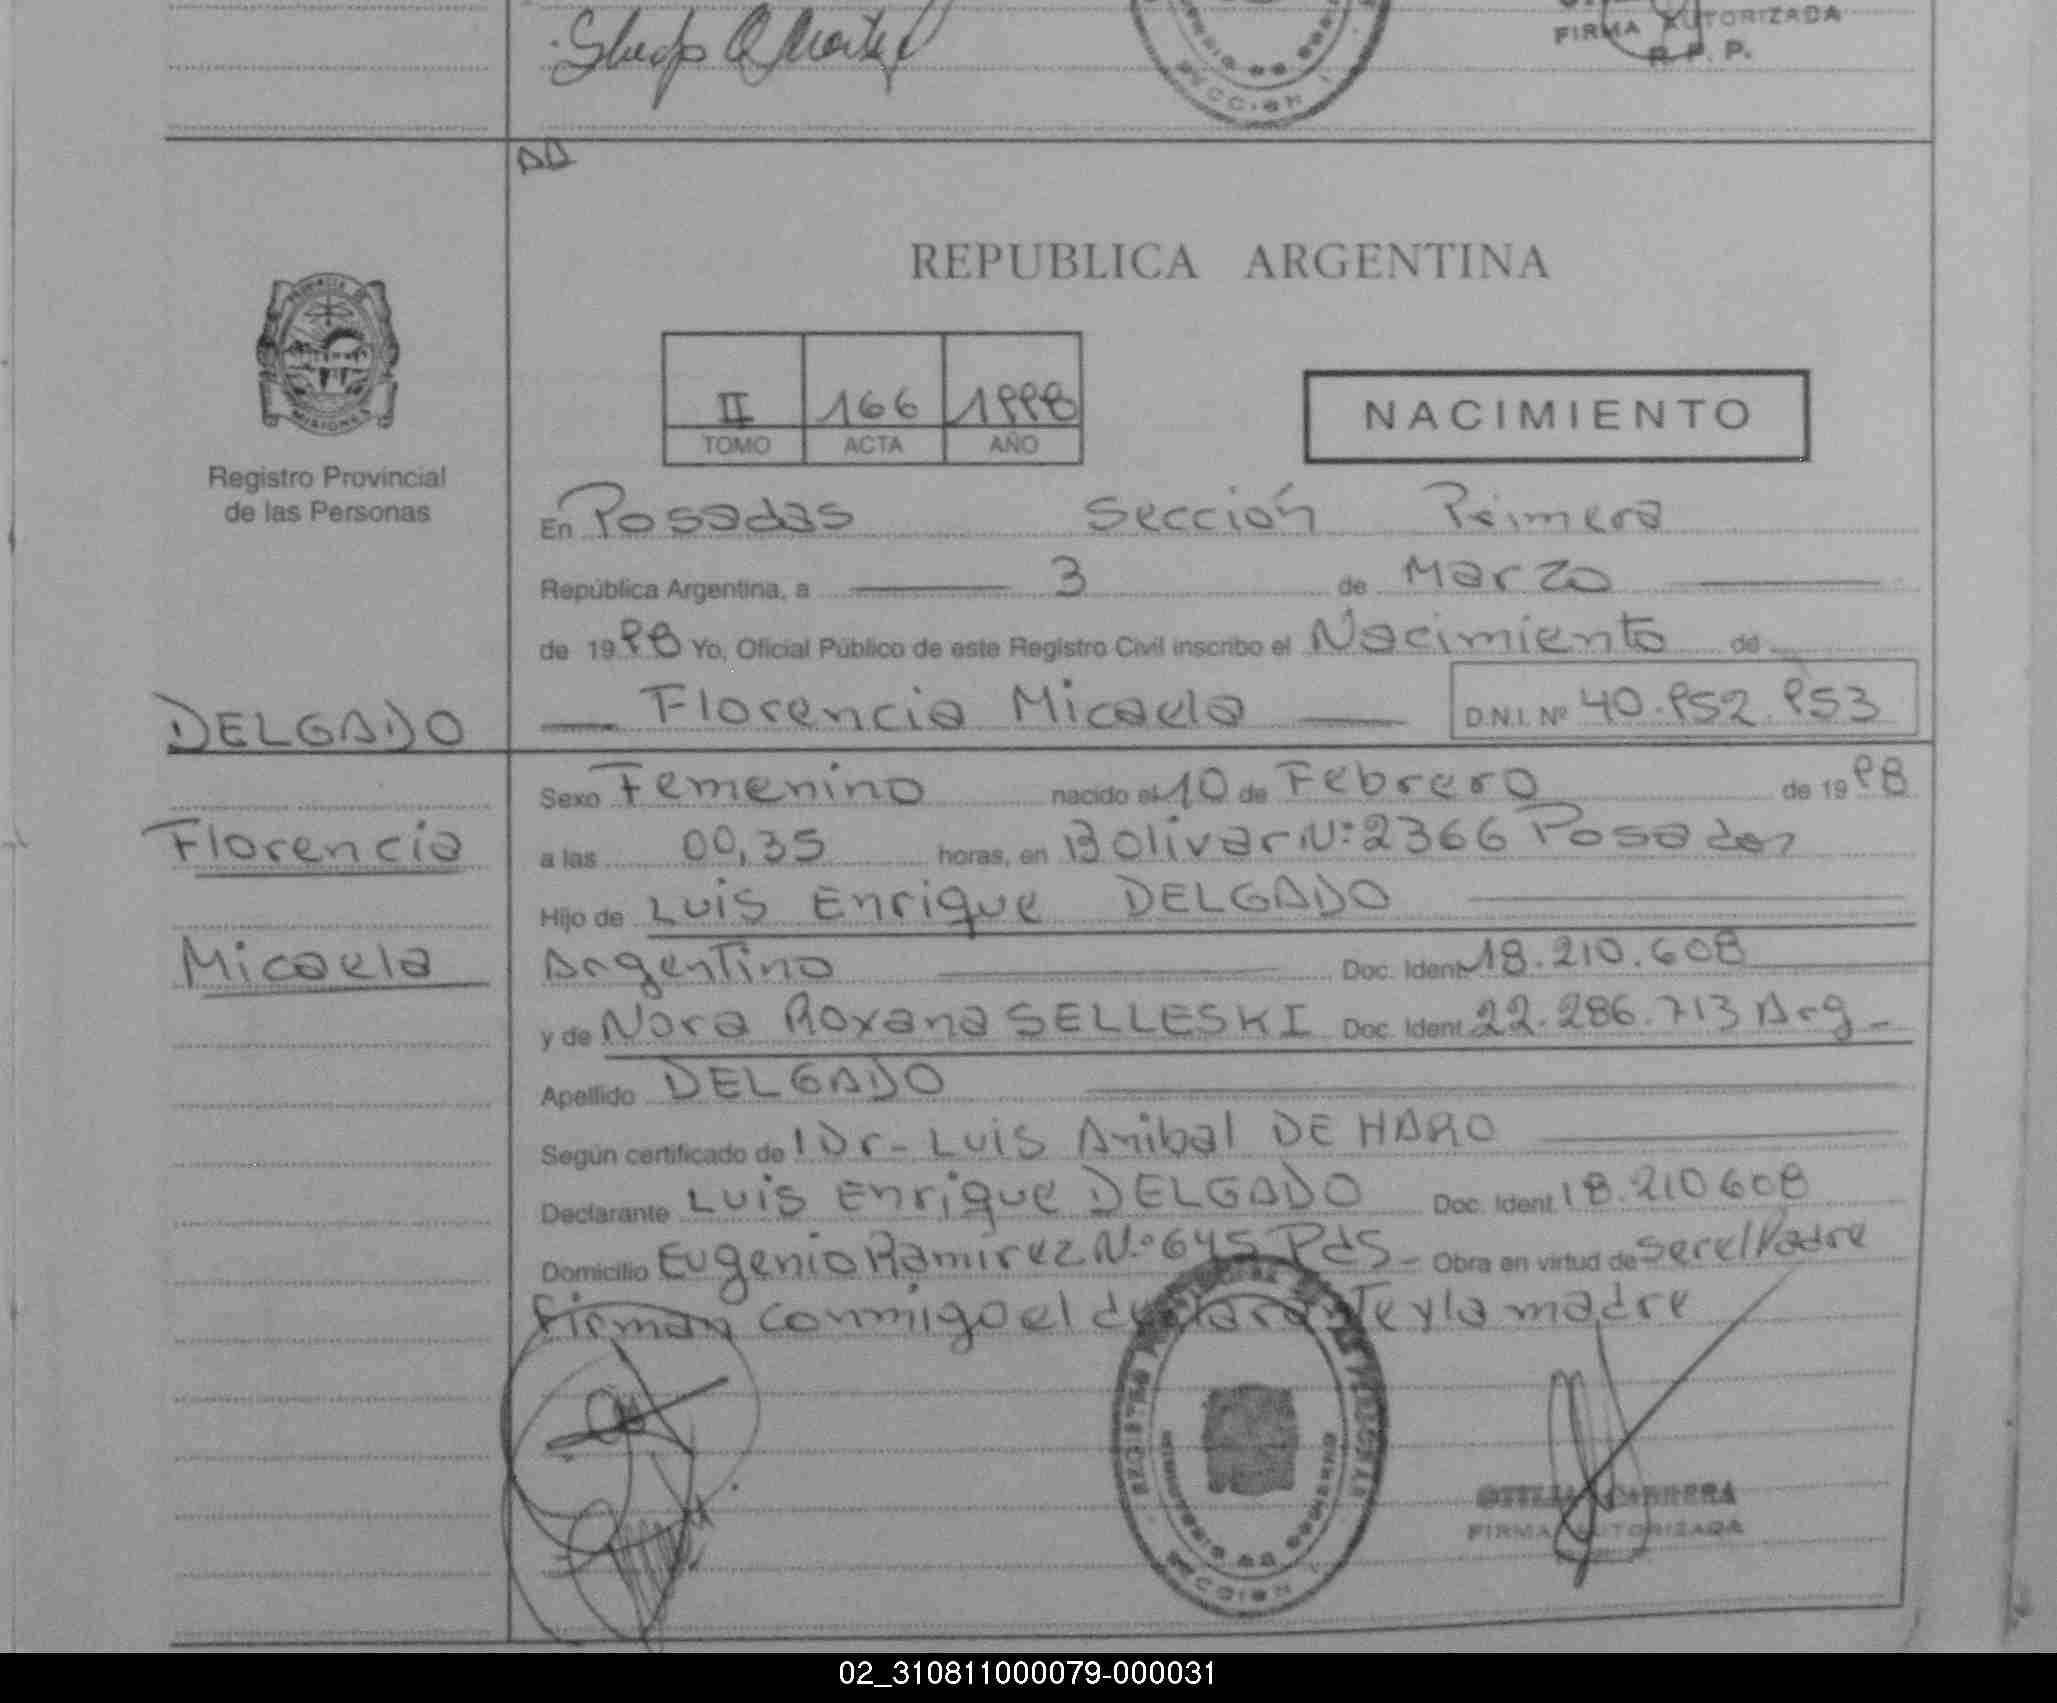 FIRMA AUTORIZADA
R. P. P.
SECCION I
REPUBLICA ARGENTINA
PROVINCIA DE
MISIONES
II 166 1998
TOMO ACTA AÑO
NACIMIENTO
Registro Provincial
de las Personas
En Posadas Sección Primera
República Argentina, a 3 de Marzo
de 1998 Yo, Oficial Público de este Registro Civil inscribo el Nacimiento de
DELGADO
Florencia Micaela D.N.I. Nº 40.952.953
Sexo Femenino nacido el 10 de Febrero de 1998
Florencia
a las 00,35 horas, en Bolivar Nº 2366 Posadas
Hijo de Luis Enrique DELGADO
Micaela
Argentino Doc. Ident. 18.210.608
y de Nora Roxana SELLESKI Doc. Ident. 22.286.713 Arg_
Apellido DELGADO
Según certificado de l Dr- Luis Anibal DE HARO
Declarante Luis Enrique DELGADO Doc. Ident. 18.210608
Domicilio Eugenio Ramirez N.º 645 Pds_ Obra en virtud de ser el Padre
firman conmigo el declarante y la madre
CABRERA
FIRMA AUTORIZADA
SECCION I
02_310811000079-000031